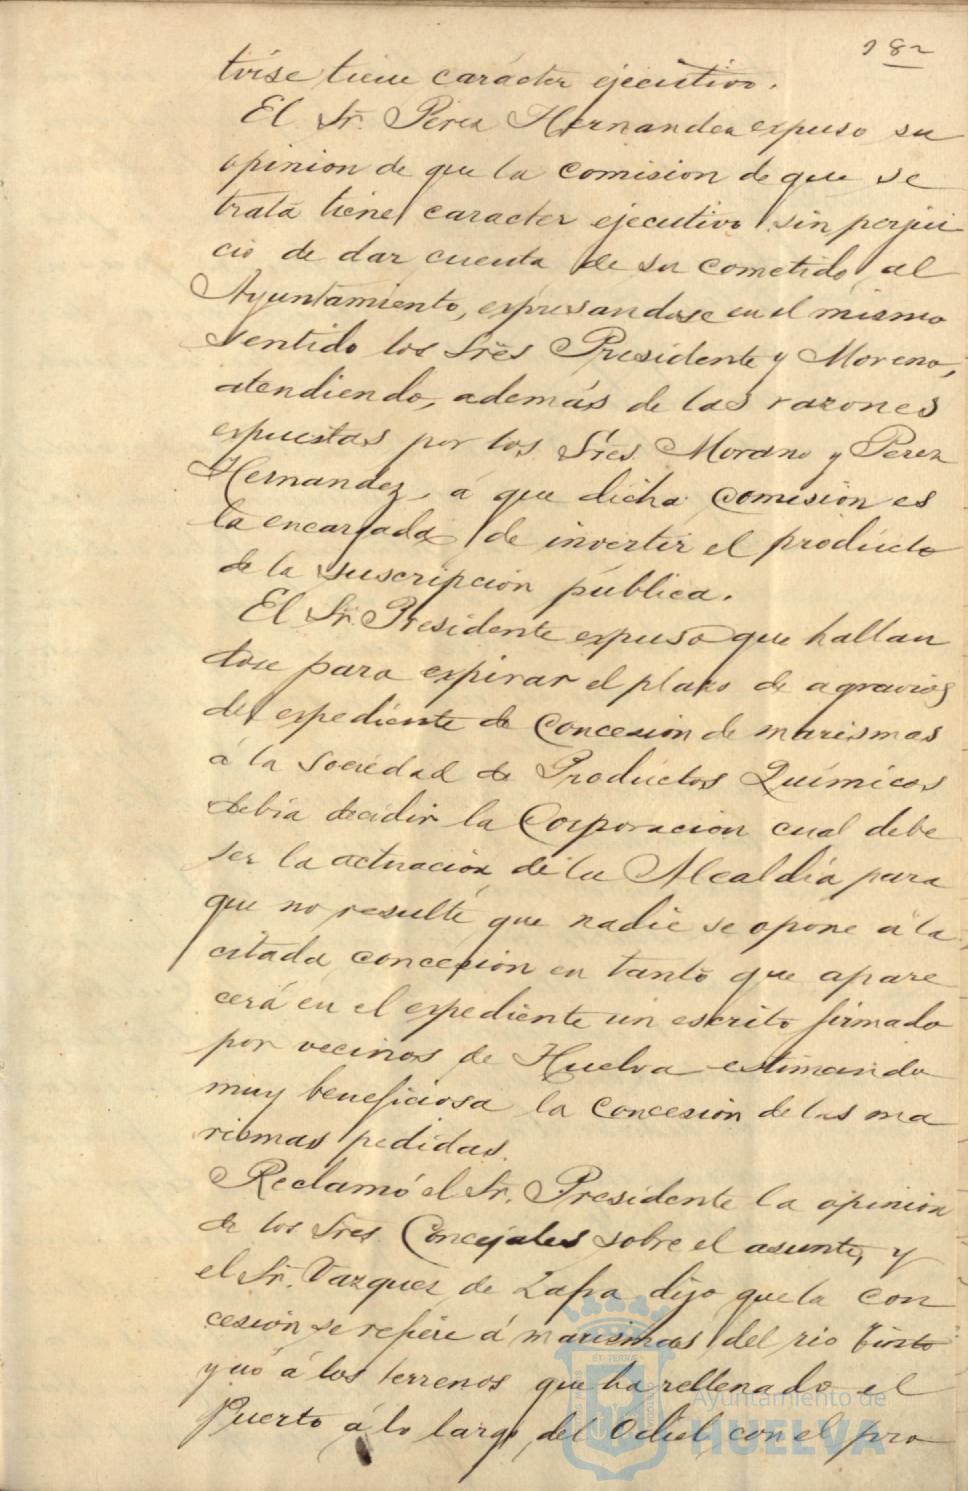 182
tvise tiene carácter ejecutivo.
El Sr. Perez Hernandez expuso su
opinion de que la comision de que se
trata tiene caracter ejecutivo sin perjui
cio de dar cuenta de su cometido al
Ayuntamiento, expresandose en el mismo
sentido los Sres Presidente y Moreno,
atendiendo, además de las razones
expuestas por los Sres. Moreno y Perez
Hernandez, á que dicha comisión es
la encargada de invertir el producto
de la suscripción pública.
El Sr. Presidente expuso que hallan
dose para expirar el plazo de agravios
del expediente de concesion de marismas
á la Sociedad de Productos Químicos
debia decidir la Corporacion cual debe
ser la actuación de la Alcaldía para
que no resulte que nadie se opone á la
citada concesion en tanto que apare
cerá en el expediente un escrito firmado
por vecinos de Huelva estimando
muy beneficiosa la concesion de las ma
rismas pedidas.
Reclamó el Sr. Presidente la opinion
de los Sres. Concejales sobre el asunto, y
el Sr. Vazquez de Zafra dijo que la con
cesión se refiere á marismas del rio tinto
y nó á los terrenos que ha rellenado el
Puerto á lo largo del Odiel, con el pro
Ayuntamiento de
HUELVA